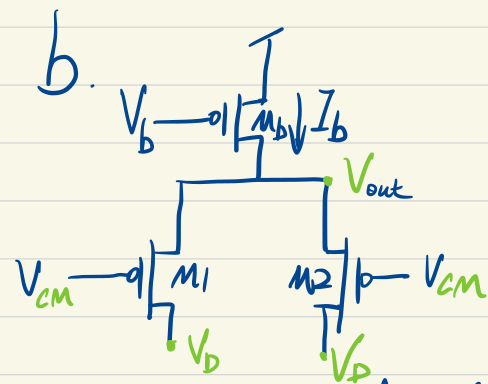 b.
V_b M_b I_b
V_out
V_CM M1 M2 V_CM
V_D V_D